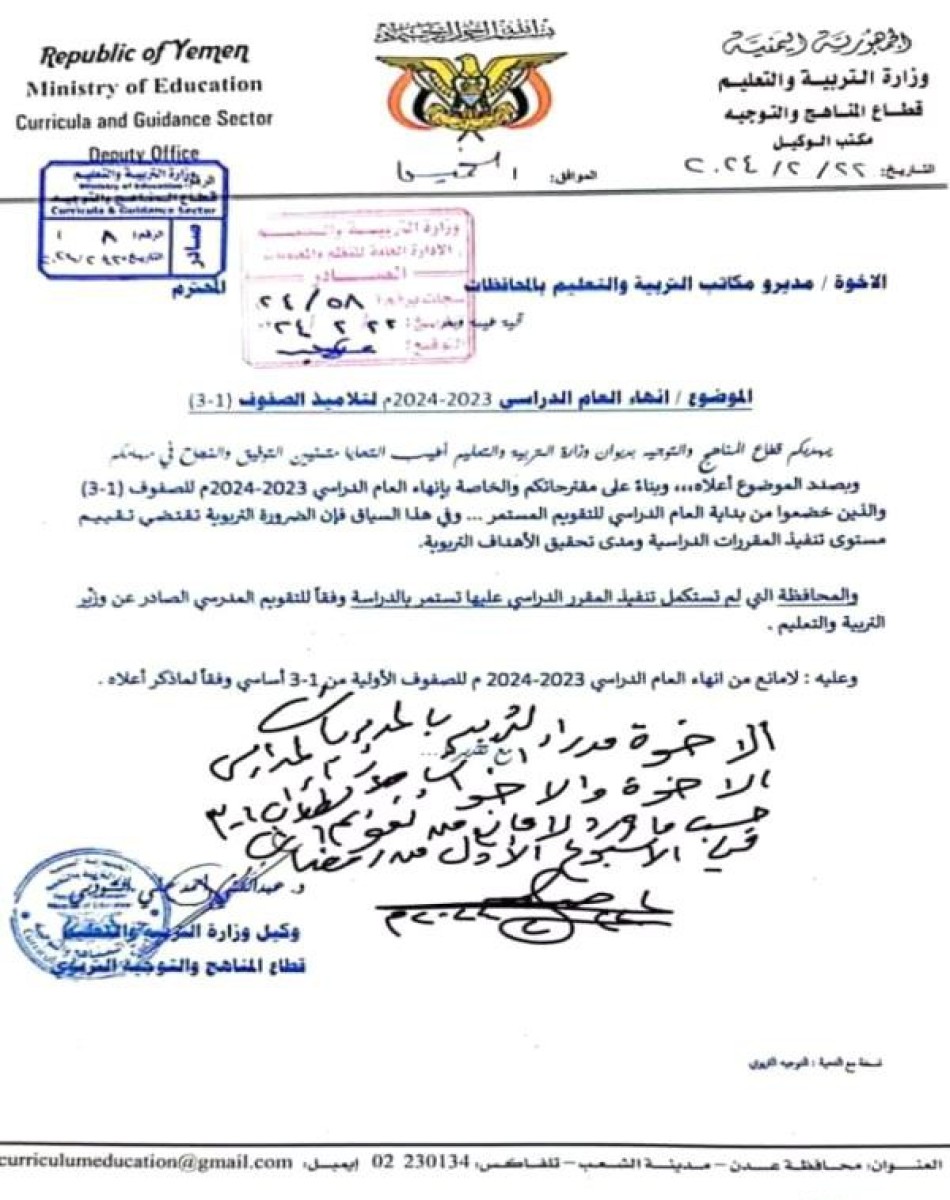 Republic of Yemen
Ministry of Education
Curricula and Guidance Sector
Deputy Office
الجمهورية اليمنية
وزارة التربية والتعليم
قطاع المناهج والتوجيه
مكتب الوكيل
التاريخ: ٢٢ / ٢ / ٢٠٢٤
الموافق: الخميس
وزارة التربية والتعليم
Ministry of Education
قطاع المناهج والتوجيه
Curricula & Guidance Sector
صادر
الرقم: ٨
التاريخ:
وزارة التربية والتعليم
الادارة العامة
الصادر
سجلت برقم: ٥٨ / ٢٤
٢٢ / ٢ /
التوقيع:
الاخوة / مديرو مكاتب التربية والتعليم بالمحافظات المحترم
تحية طيبة وبعد
الموضوع / انهاء العام الدراسي 2023-2024م لتلاميذ الصفوف (1-3)
يهديكم قطاع المناهج والتوجيه بديوان وزارة التربية والتعليم أطيب التحايا متمنيين التوفيق والنجاح في مهامكم
وبصدد الموضوع أعلاه،،، وبناءً على مقترحاتكم والخاصة بإنهاء العام الدراسي 2023-2024م للصفوف (1-3)
والذين خضعوا من بداية العام الدراسي للتقويم المستمر ... وفي هذا السياق فإن الضرورة التربوية تقتضي تقييم
مستوى تنفيذ المقررات الدراسية ومدى تحقيق الأهداف التربوية.
والمحافظة التي لم تستكمل تنفيذ المقرر الدراسي عليها تستمر بالدراسة وفقاً للتقويم المدرسي الصادر عن وزير
التربية والتعليم .
وعليه : لامانع من انهاء العام الدراسي 2023-2024 م للصفوف الأولية من 1-3 أساسي وفقاً لماذكر أعلاه .
الاخوة مدراء التربية بالمديريات
الاخوة والاخوات المدارس
حسب ما ورد لا مانع من تقويم ١-٣
في الاسبوع الاول من رمضان
د. عبدالغني احمد علي الشوذبي
وكيل وزارة التربية والتعليم
قطاع المناهج والتوجيه التربوي
نسخة مع التحية : التوجيه التربوي
العنوان: محافظة عدن – مدينة الشعب – تلفاكس: 230134 02 إيميل: curriculumeducation@gmail.com